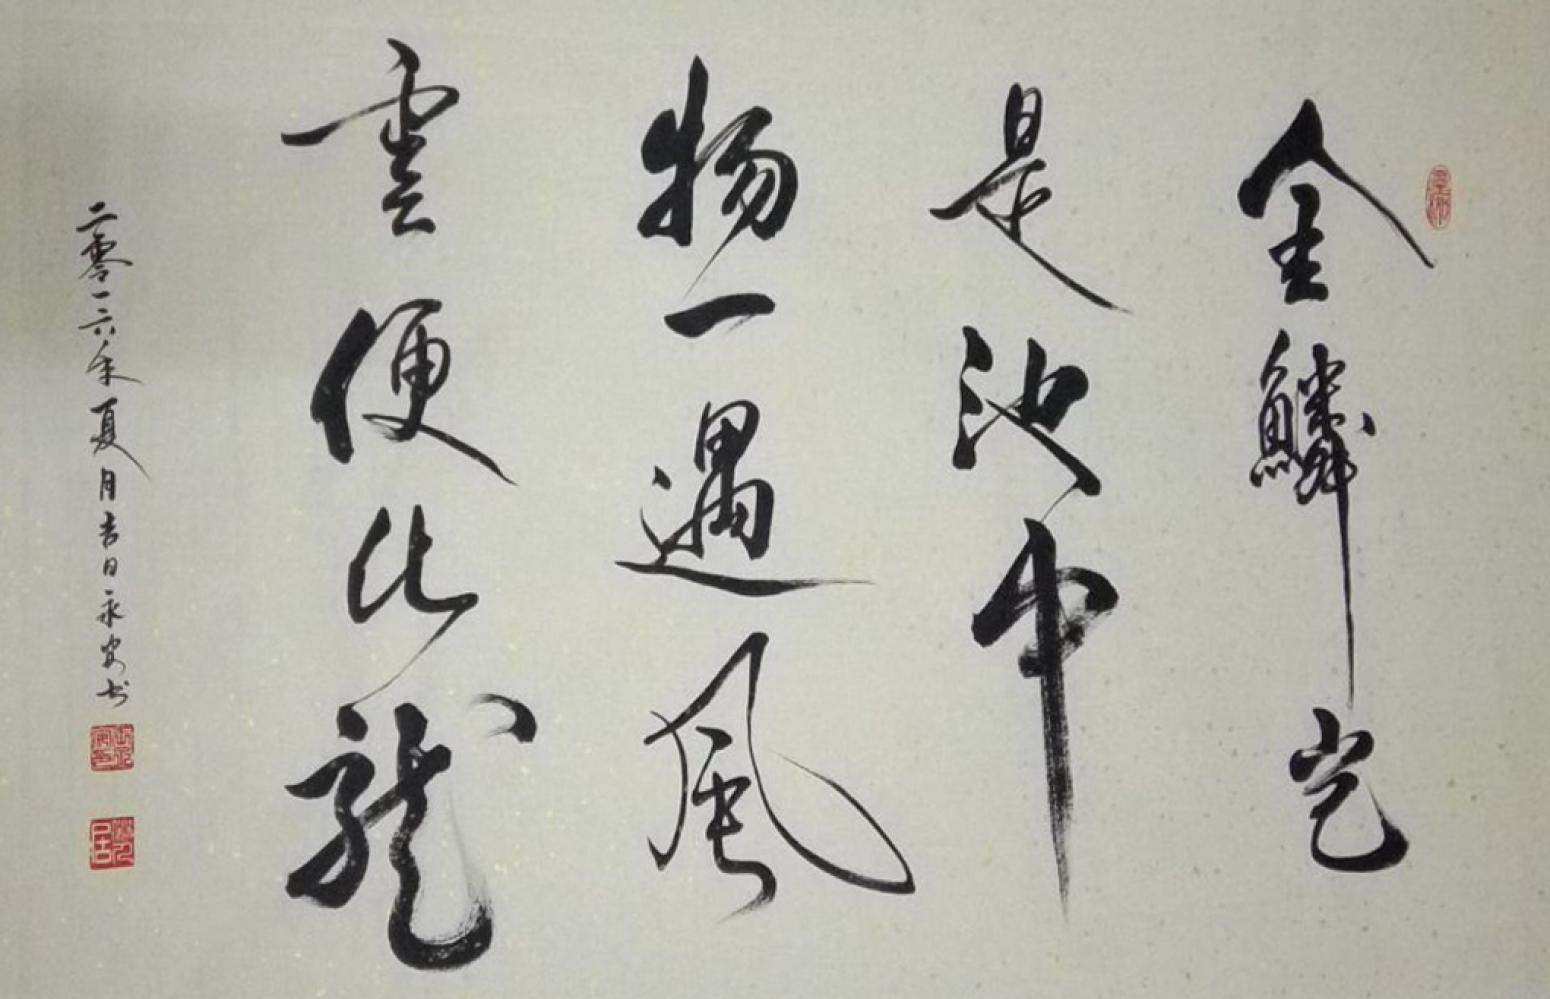 金鱗豈
是池中
物一遇風
雲便化龍
二零一六年夏月吉日永安书